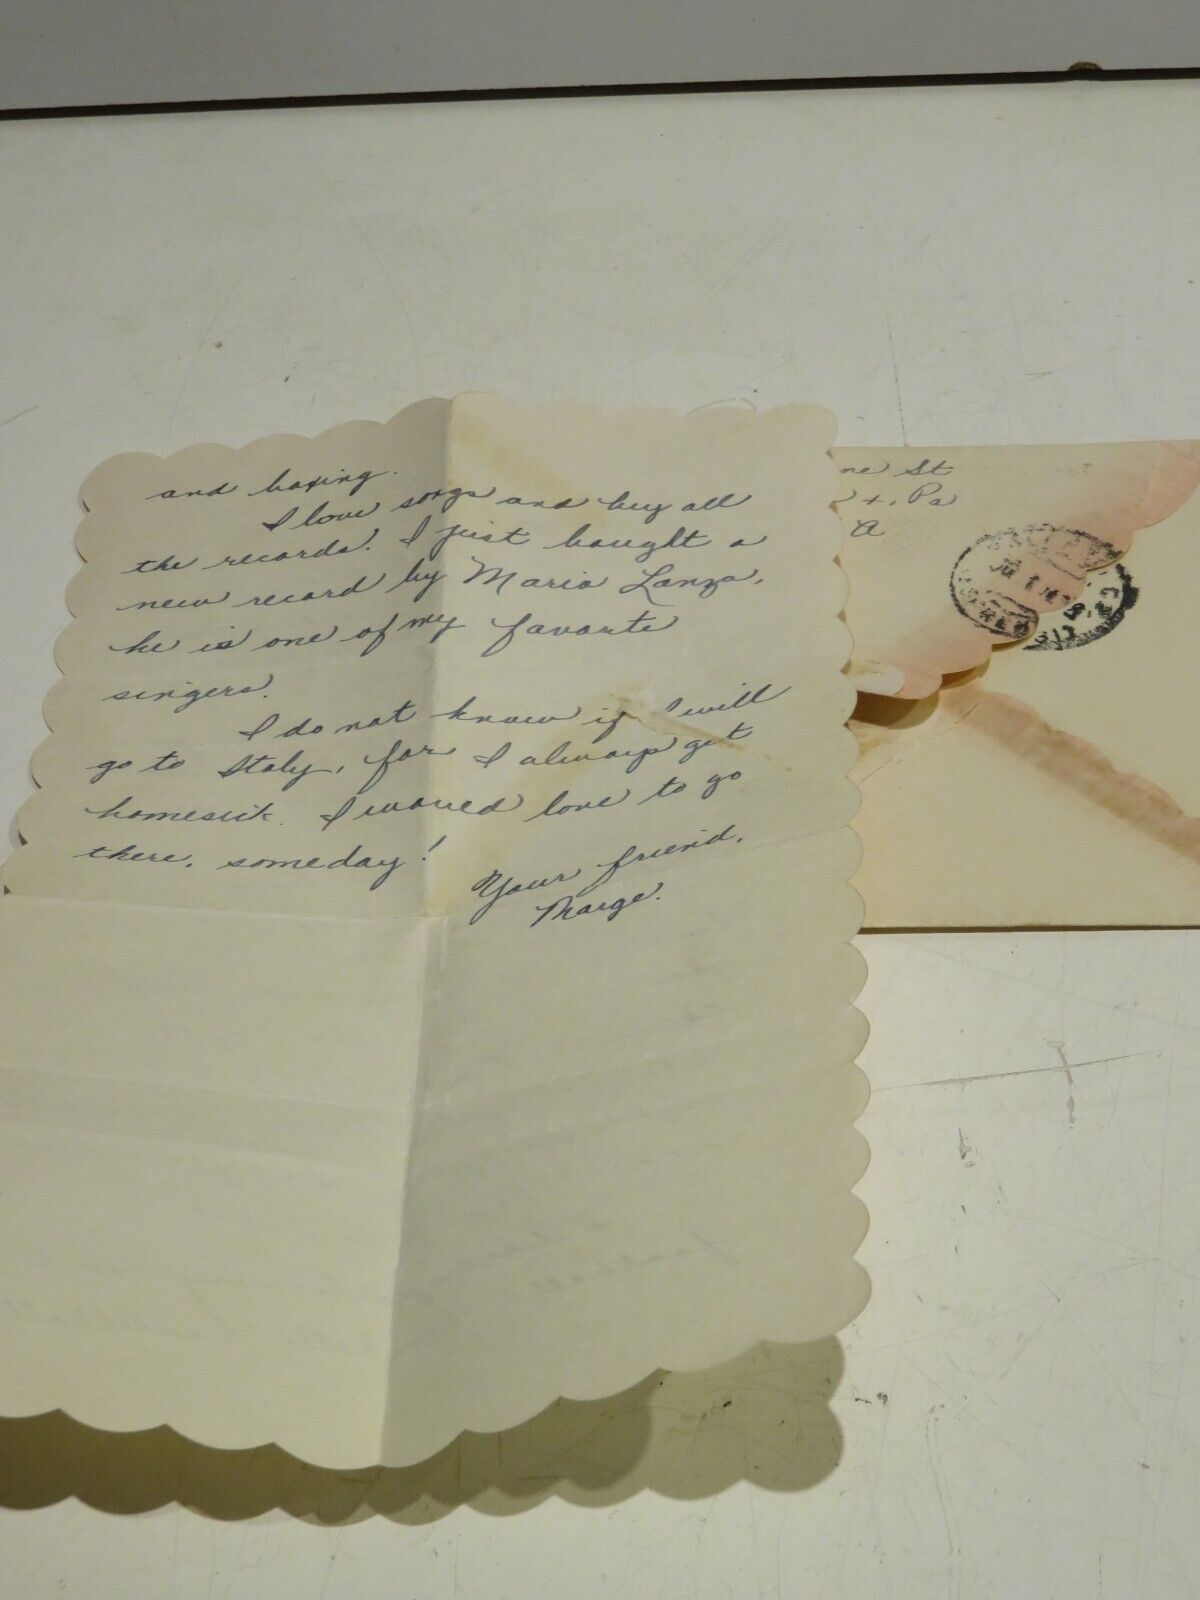 and boxing.
I love songs and buy all
the records. I just bought a
new record by Mario Lanza,
he is one of my favorite
singers.
I do not know if I will
go to Italy, for I always get
homesick. I would love to go
there, someday!
Your friend,
Marge.
ne St
Pa
A